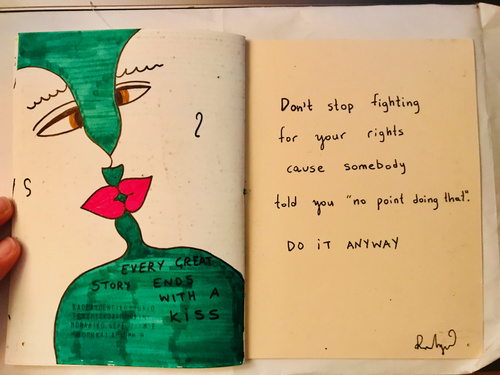 EVERY GREAT
STORY ENDS
WITH A
KISS
Don't stop fighting
for your rights
cause somebody
told you "no point doing that".
DO IT ANYWAY